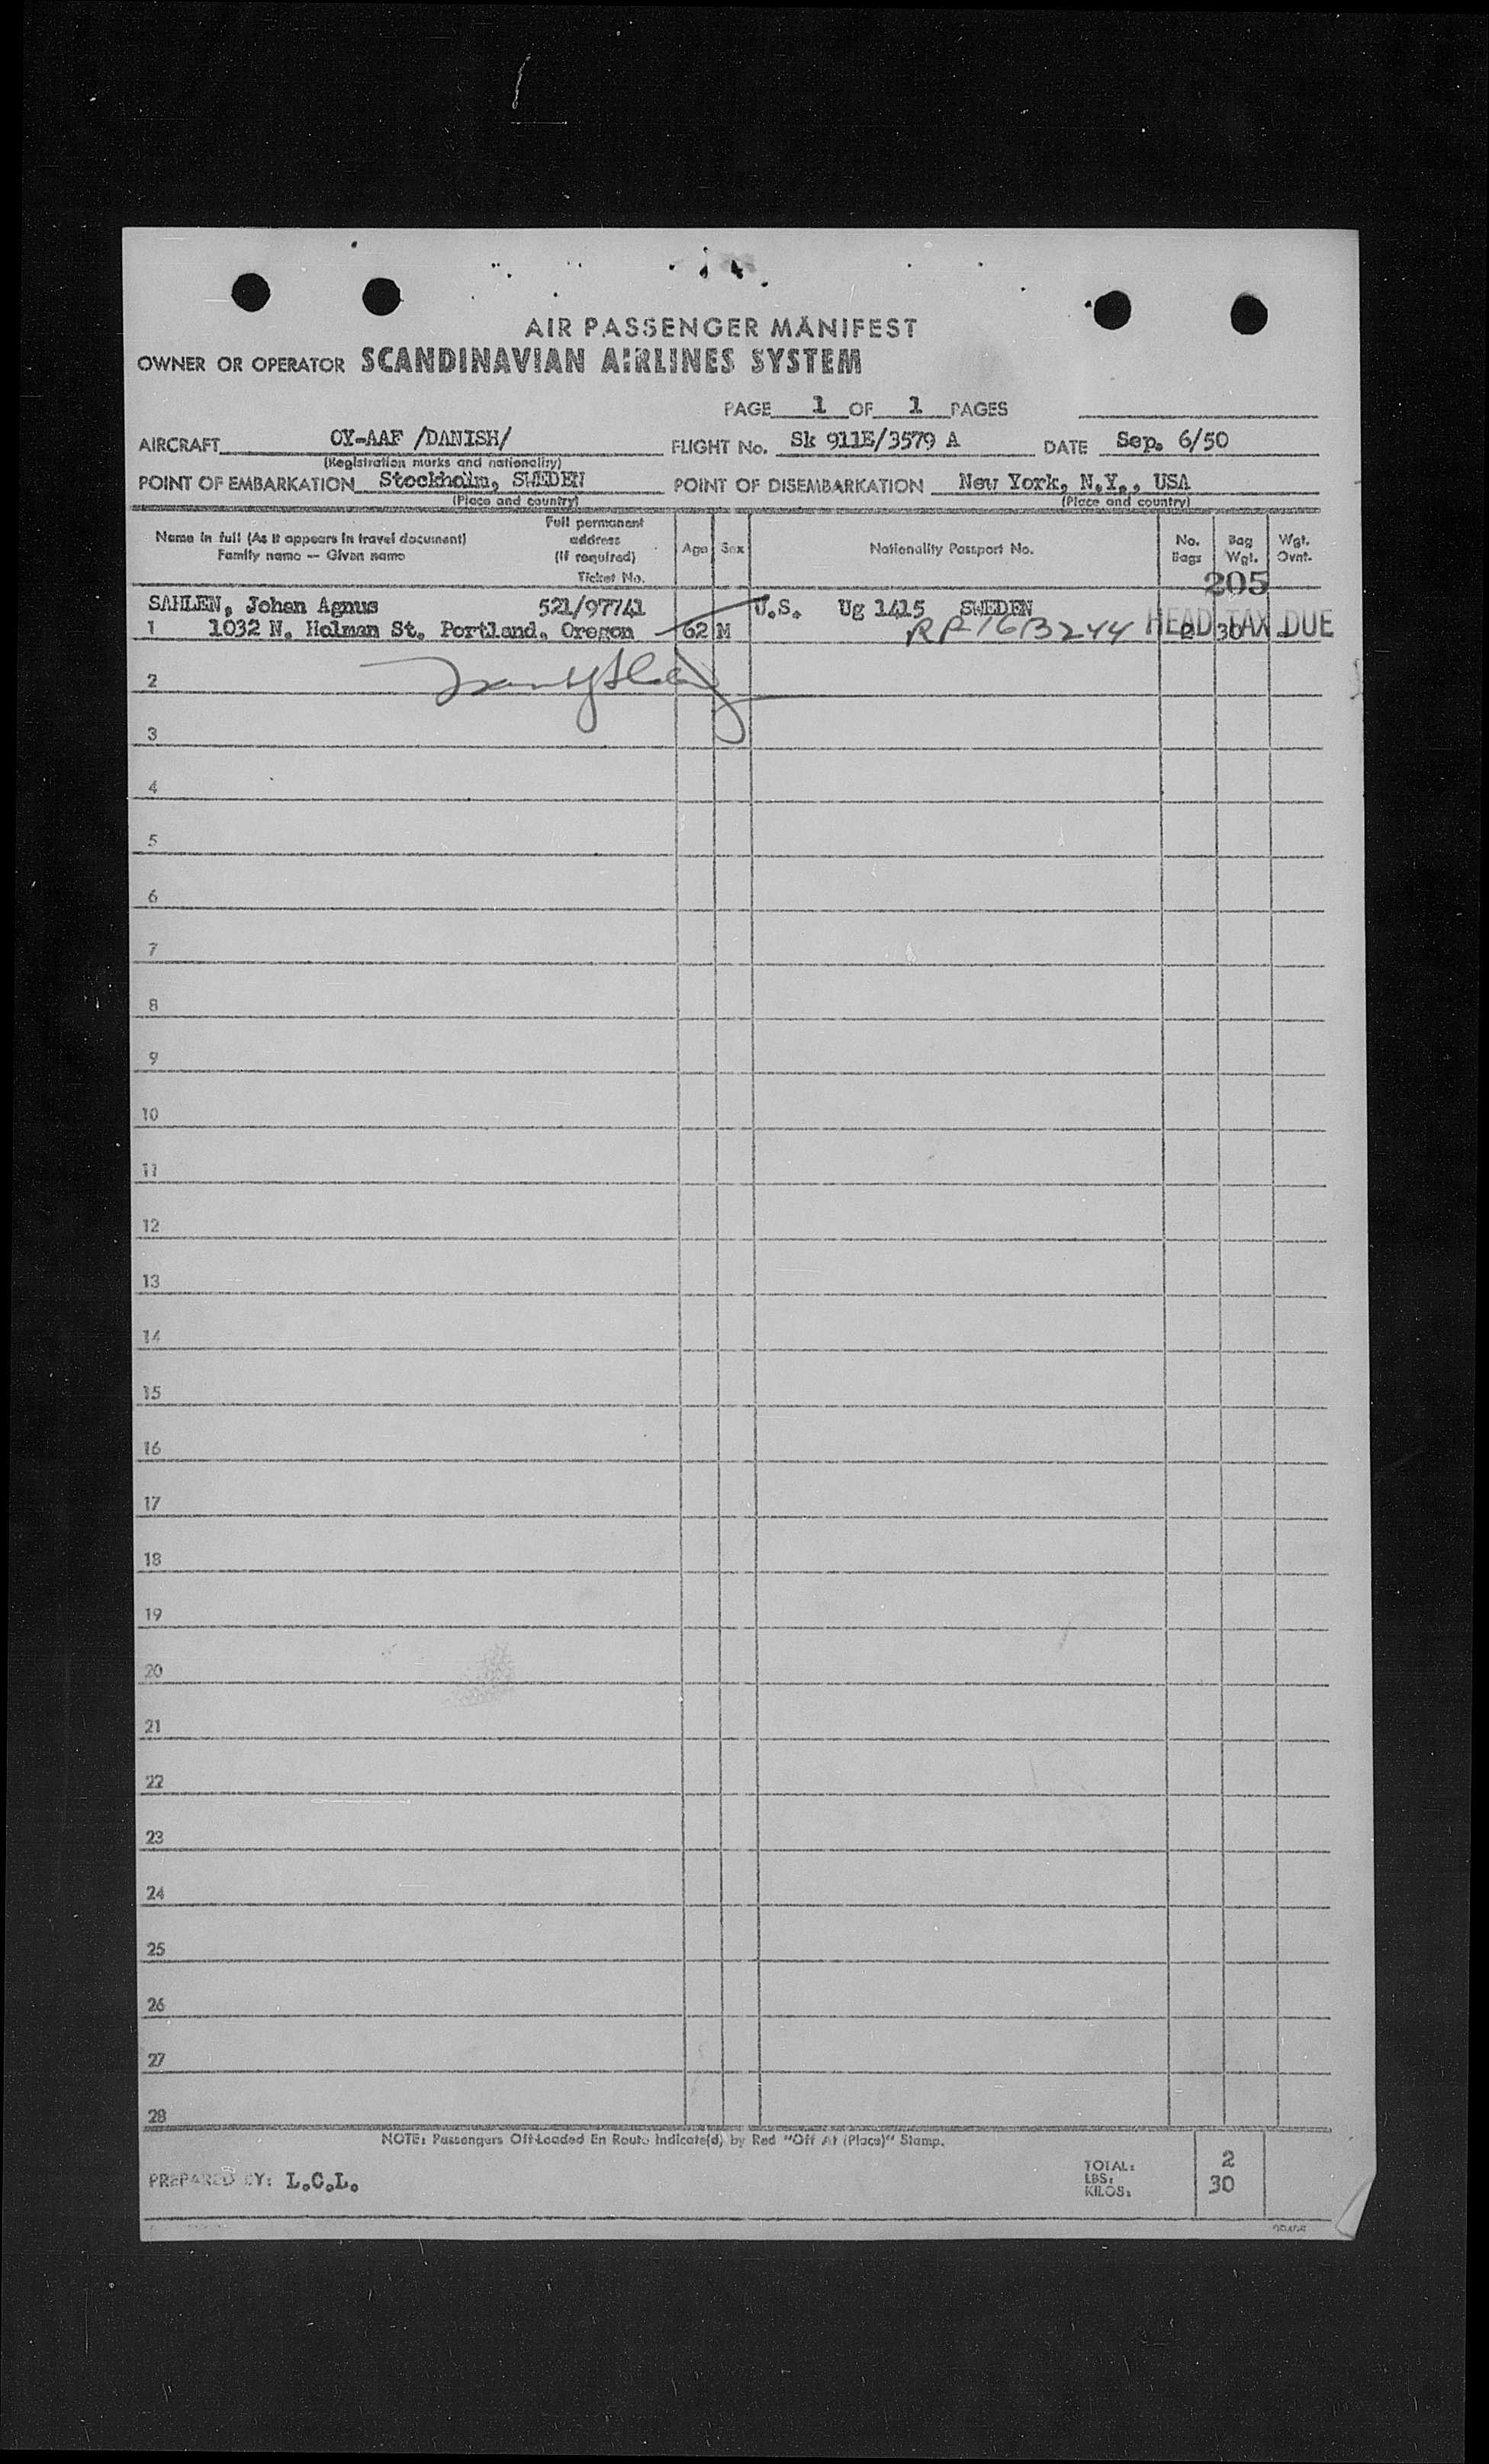 AIR PASSENGER MANIFEST
OWNER OR OPERATOR SCANDINAVIAN AIRLINES SYSTEM
PAGE 1 OF 1 PAGES
AIRCRAFT OY-AAF /DANISH/ FLIGHT No. Sk 911E/3579 A DATE Sep. 6/50
(Registration marks and nationality)
POINT OF EMBARKATION Stockholm, SWEDEN POINT OF DISEMBARKATION New York, N.Y., USA
(Place and country) (Place and country)
Name in full (As it appears in travel document)
Family name — Given name
Full permanent
address
(If required)
Ticket No.
Age Sex Nationality Passport No. No.
Bags Bag
Wgt. Wgt.
Ovnt.
205
SAHLEN, Johan Agnus 521/97741 U.S. Ug 1415 SWEDEN
1 1032 N. Holman St. Portland, Oregon 62 M 2 30 -
RP 1613244 HEAD TAX DUE
2
3
4
5
6
7
8
9
10
11
12
13
14
15
16
17
18
19
20
21
22
23
24
25
26
27
28
NOTE: Passengers Off-Loaded En Route Indicate(d) by Red "Off At (Place)" Stamp.
PREPARED BY: L.C.L.
TOTAL: 2
LBS:
KILOS: 30